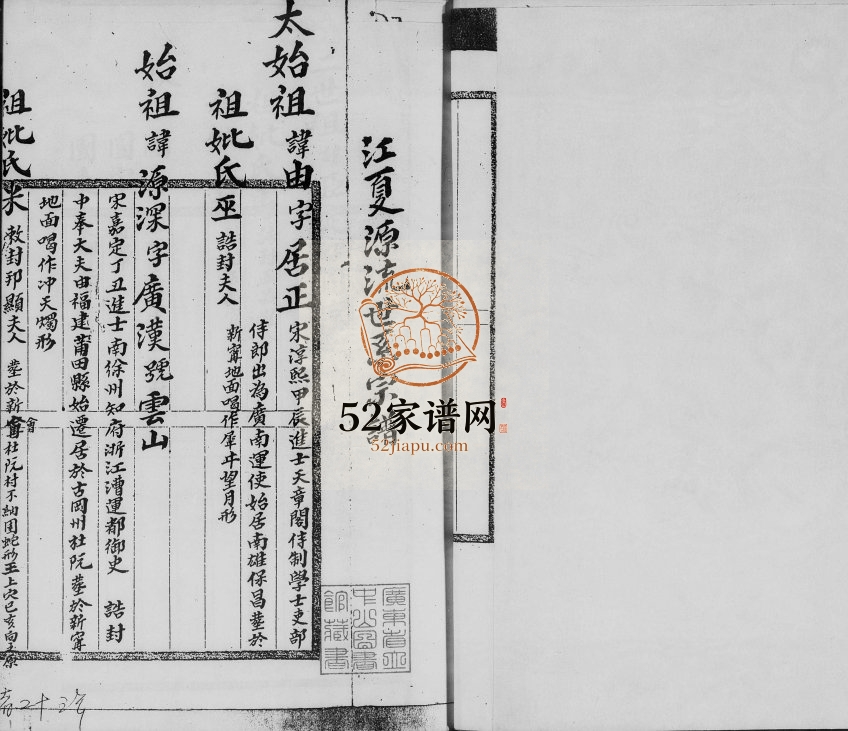 江夏源流世系宗譜
太始祖諱由字居正
宋淳熙甲辰進士天章閣侍制學士吏部
侍郎出為廣南運使始居南雄保昌塟於
新寧地面喝作犀牛望月形
祖妣氏巫 誥封夫人
始祖諱源深字廣漢號雲山
宋嘉定丁丑進士南徐州知府浙江漕運都御史 誥封
中奉大夫由福建莆田縣始遷居於古岡州杜阮塟於新寧
地面喝作冲天燭形
祖妣氏米 敕封邦顯夫人 塟於新會杜阮村不納園蛇形
廣東省立
中山圖書
館藏書
52家谱网
52jiapu.com